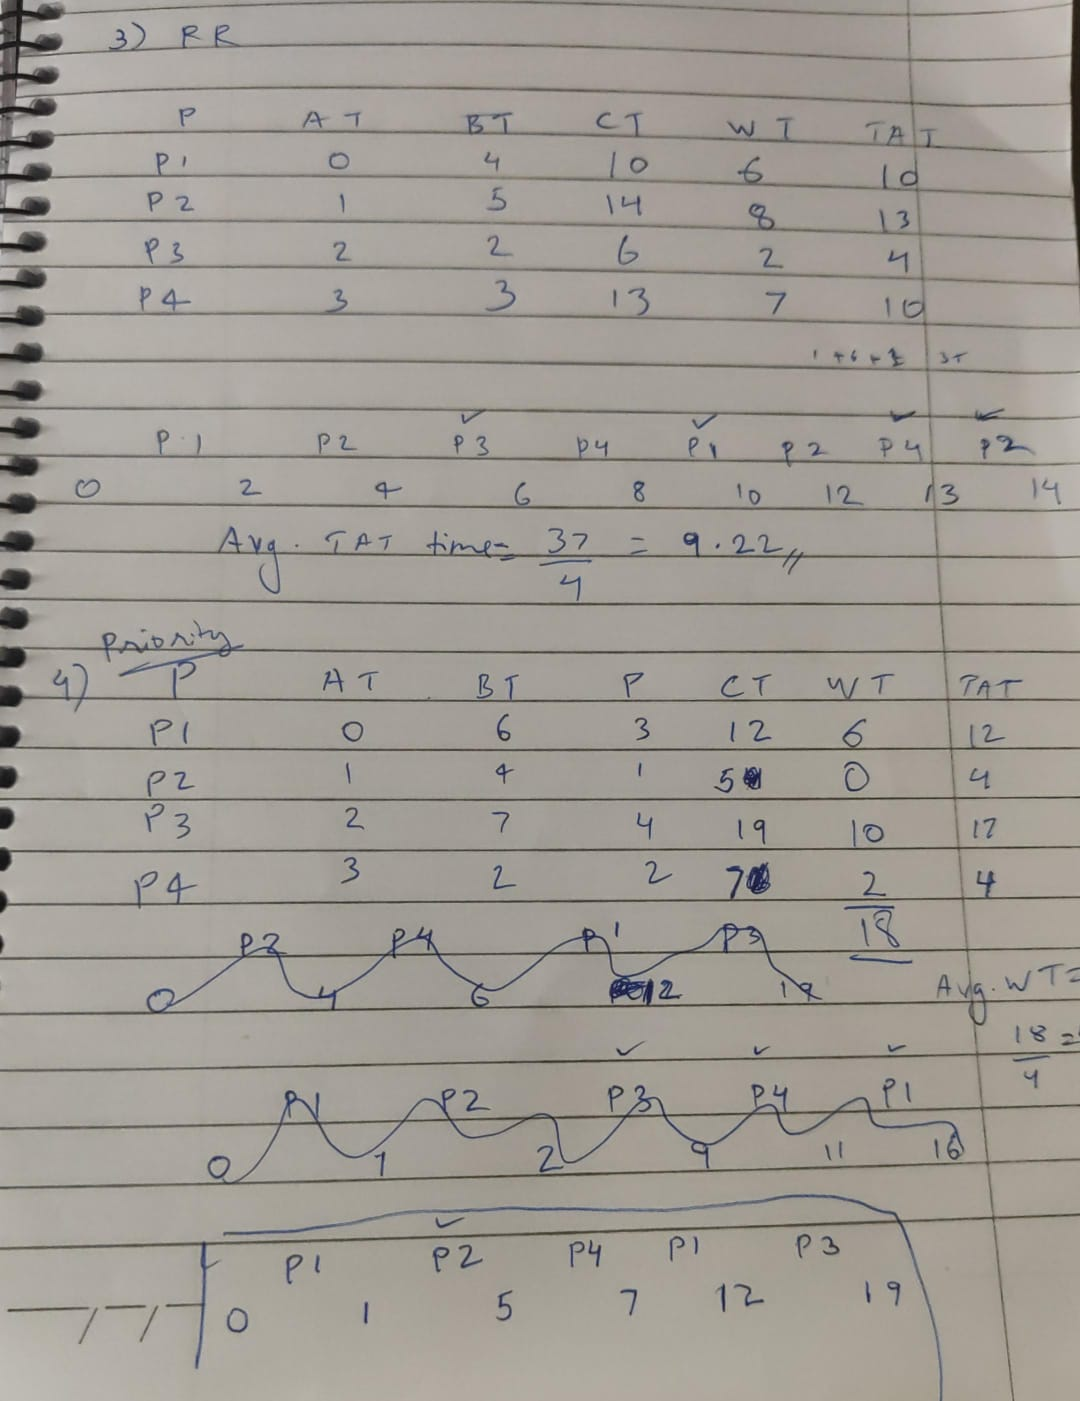 3) RR
P AT BT CT WT TAT
P1 0 4 10 6 10
P2 1 5 14 8 13
P3 2 2 6 2 4
P4 3 3 13 7 10
P1 P2 P3 P4 P1 P2 P4 P2
0 2 4 6 8 10 12 13 14
Avg. TAT time = 37/4 = 9.22
Priority
4) P AT BT P CT WT TAT
P1 0 6 3 12 6 12
P2 1 4 1 5 0 4
P3 2 7 4 19 10 17
P4 3 2 2 7 2 4
18
P2 P4 P1 P3
0 4 6 12 19
Avg. WT =
18/4 =
P1 P2 P3 P4 P1
0 1 2 9 11 16
P1 P2 P4 P1 P3
0 1 5 7 12 19